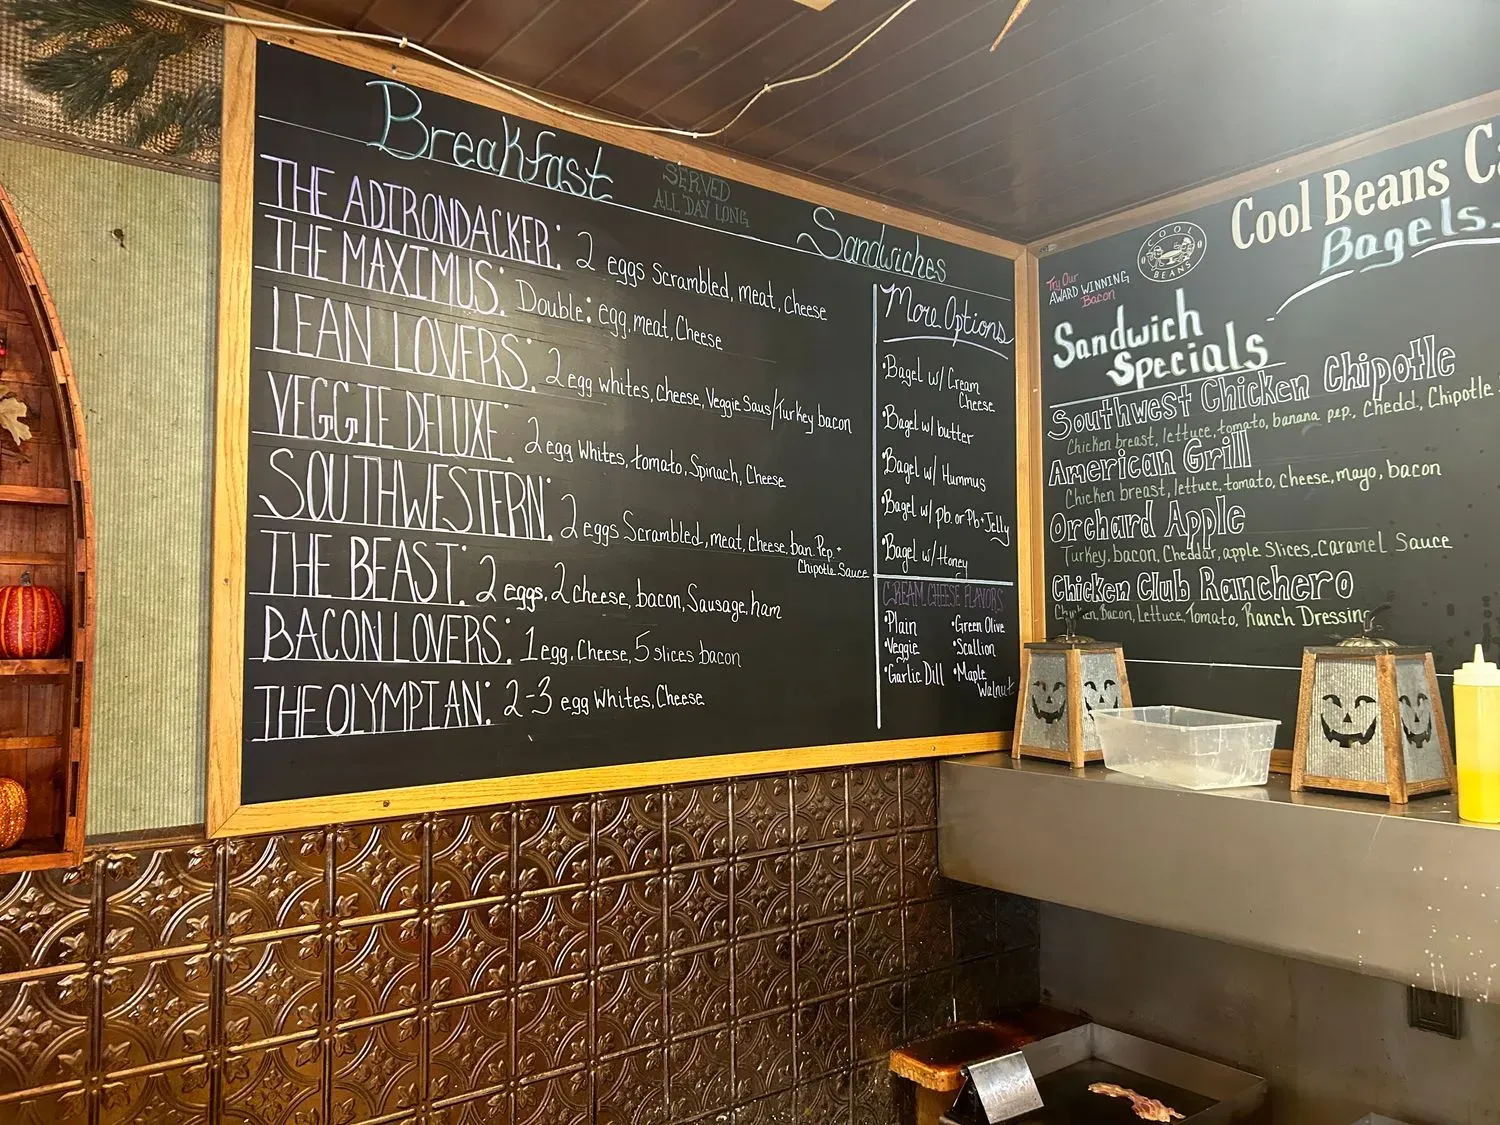 Breakfast
SERVED
ALL DAY LONG
Sandwiches
THE ADIRONDACKER: 2 eggs Scrambled, meat, Cheese
THE MAXIMUS: Double: egg, meat, Cheese
LEAN LOVERS: 2 egg whites, Cheese, Veggie Saus/Turkey bacon
VEGGIE DELUXE: 2 egg Whites, tomato, Spinach, Cheese
SOUTHWESTERN: 2 eggs Scrambled, meat, Cheese, ban. Pep. +
Chipotle Sauce
THE BEAST: 2 eggs, 2 cheese, bacon, Sausage, ham
BACON LOVERS: 1 egg, Cheese, 5 slices bacon
THE OLYMPIAN: 2-3 egg Whites, Cheese
More Options
•Bagel w/ Cream
Cheese
•Bagel w/ butter
•Bagel w/ Hummus
•Bagel w/ pb. or Pb+Jelly
•Bagel w/ Honey
CREAM CHEESE FLAVORS
•Plain •Green Olive
•Veggie •Scallion
•Garlic Dill •Maple
Walnut
Cool Beans
Bagels
COOL
BEANS
Try Our
AWARD WINNING
Bacon
Sandwich
Specials
Southwest Chicken Chipotle
Chicken breast, lettuce, tomato, banana pep., Chedd, Chipotle
American Grill
Chicken breast, lettuce, tomato, cheese, mayo, bacon
Orchard Apple
Turkey, bacon, Cheddar, apple Slices, Caramel Sauce
Chicken Club Ranchero
Chicken, Bacon, Lettuce, Tomato, Ranch Dressing